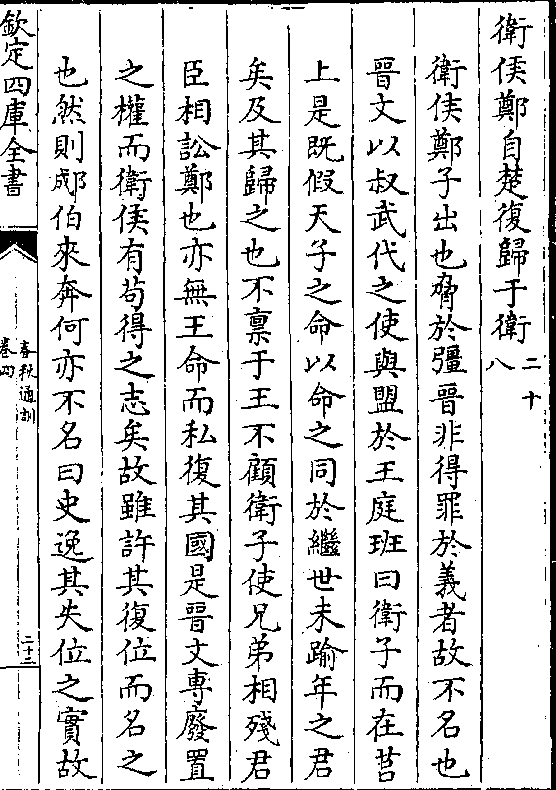 衛侯鄭自楚復歸于衛二十八
衛侯鄭子出也脅於彊晉非得罪於義者故不名也
晉文以叔武代之使與盟於王庭班曰衛子而在莒
上是既假天子之命以命之同於繼世未踰年之君
矣及其歸之也不禀于王不顧衛子使兄弟相殘君
臣相訟鄭也亦無王命而私復其國是晉文專廢置
之權而衛侯有苟得之志矣故雖許其復位而名之
也然則郕伯來奔何亦不名曰史逸其失位之實故
欽定四庫全書
春秋通訓
卷四
二十三